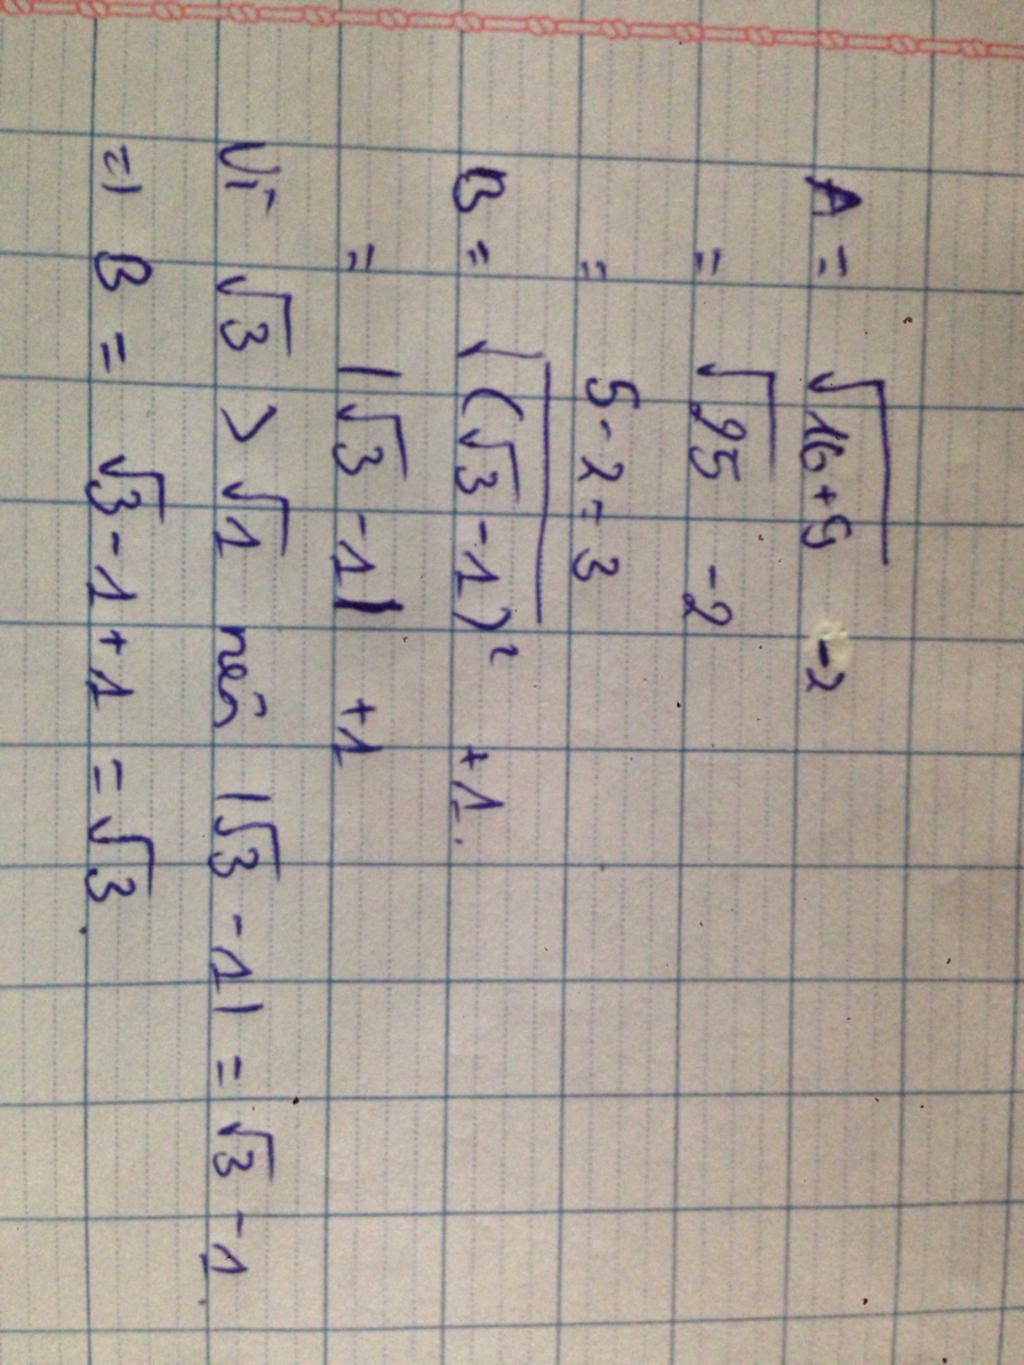 A = √(16+9) -2
= √25 -2
= 5-2 = 3
B = √((√3 -1)²) +1.
= |√3 -1| +1
Vì √3 > √1 nên |√3 -1| = √3 -1.
=> B = √3 -1 +1 = √3.